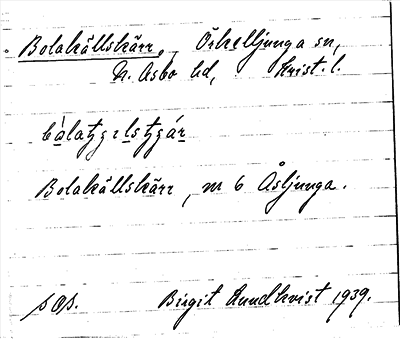 Bolakällskärr, Örkelljunga sn,
N. Åsbo hd, Krist. l.
Bolakällskärr, nr 6 Åsljunga.
Birgit Rundkvist 1939.